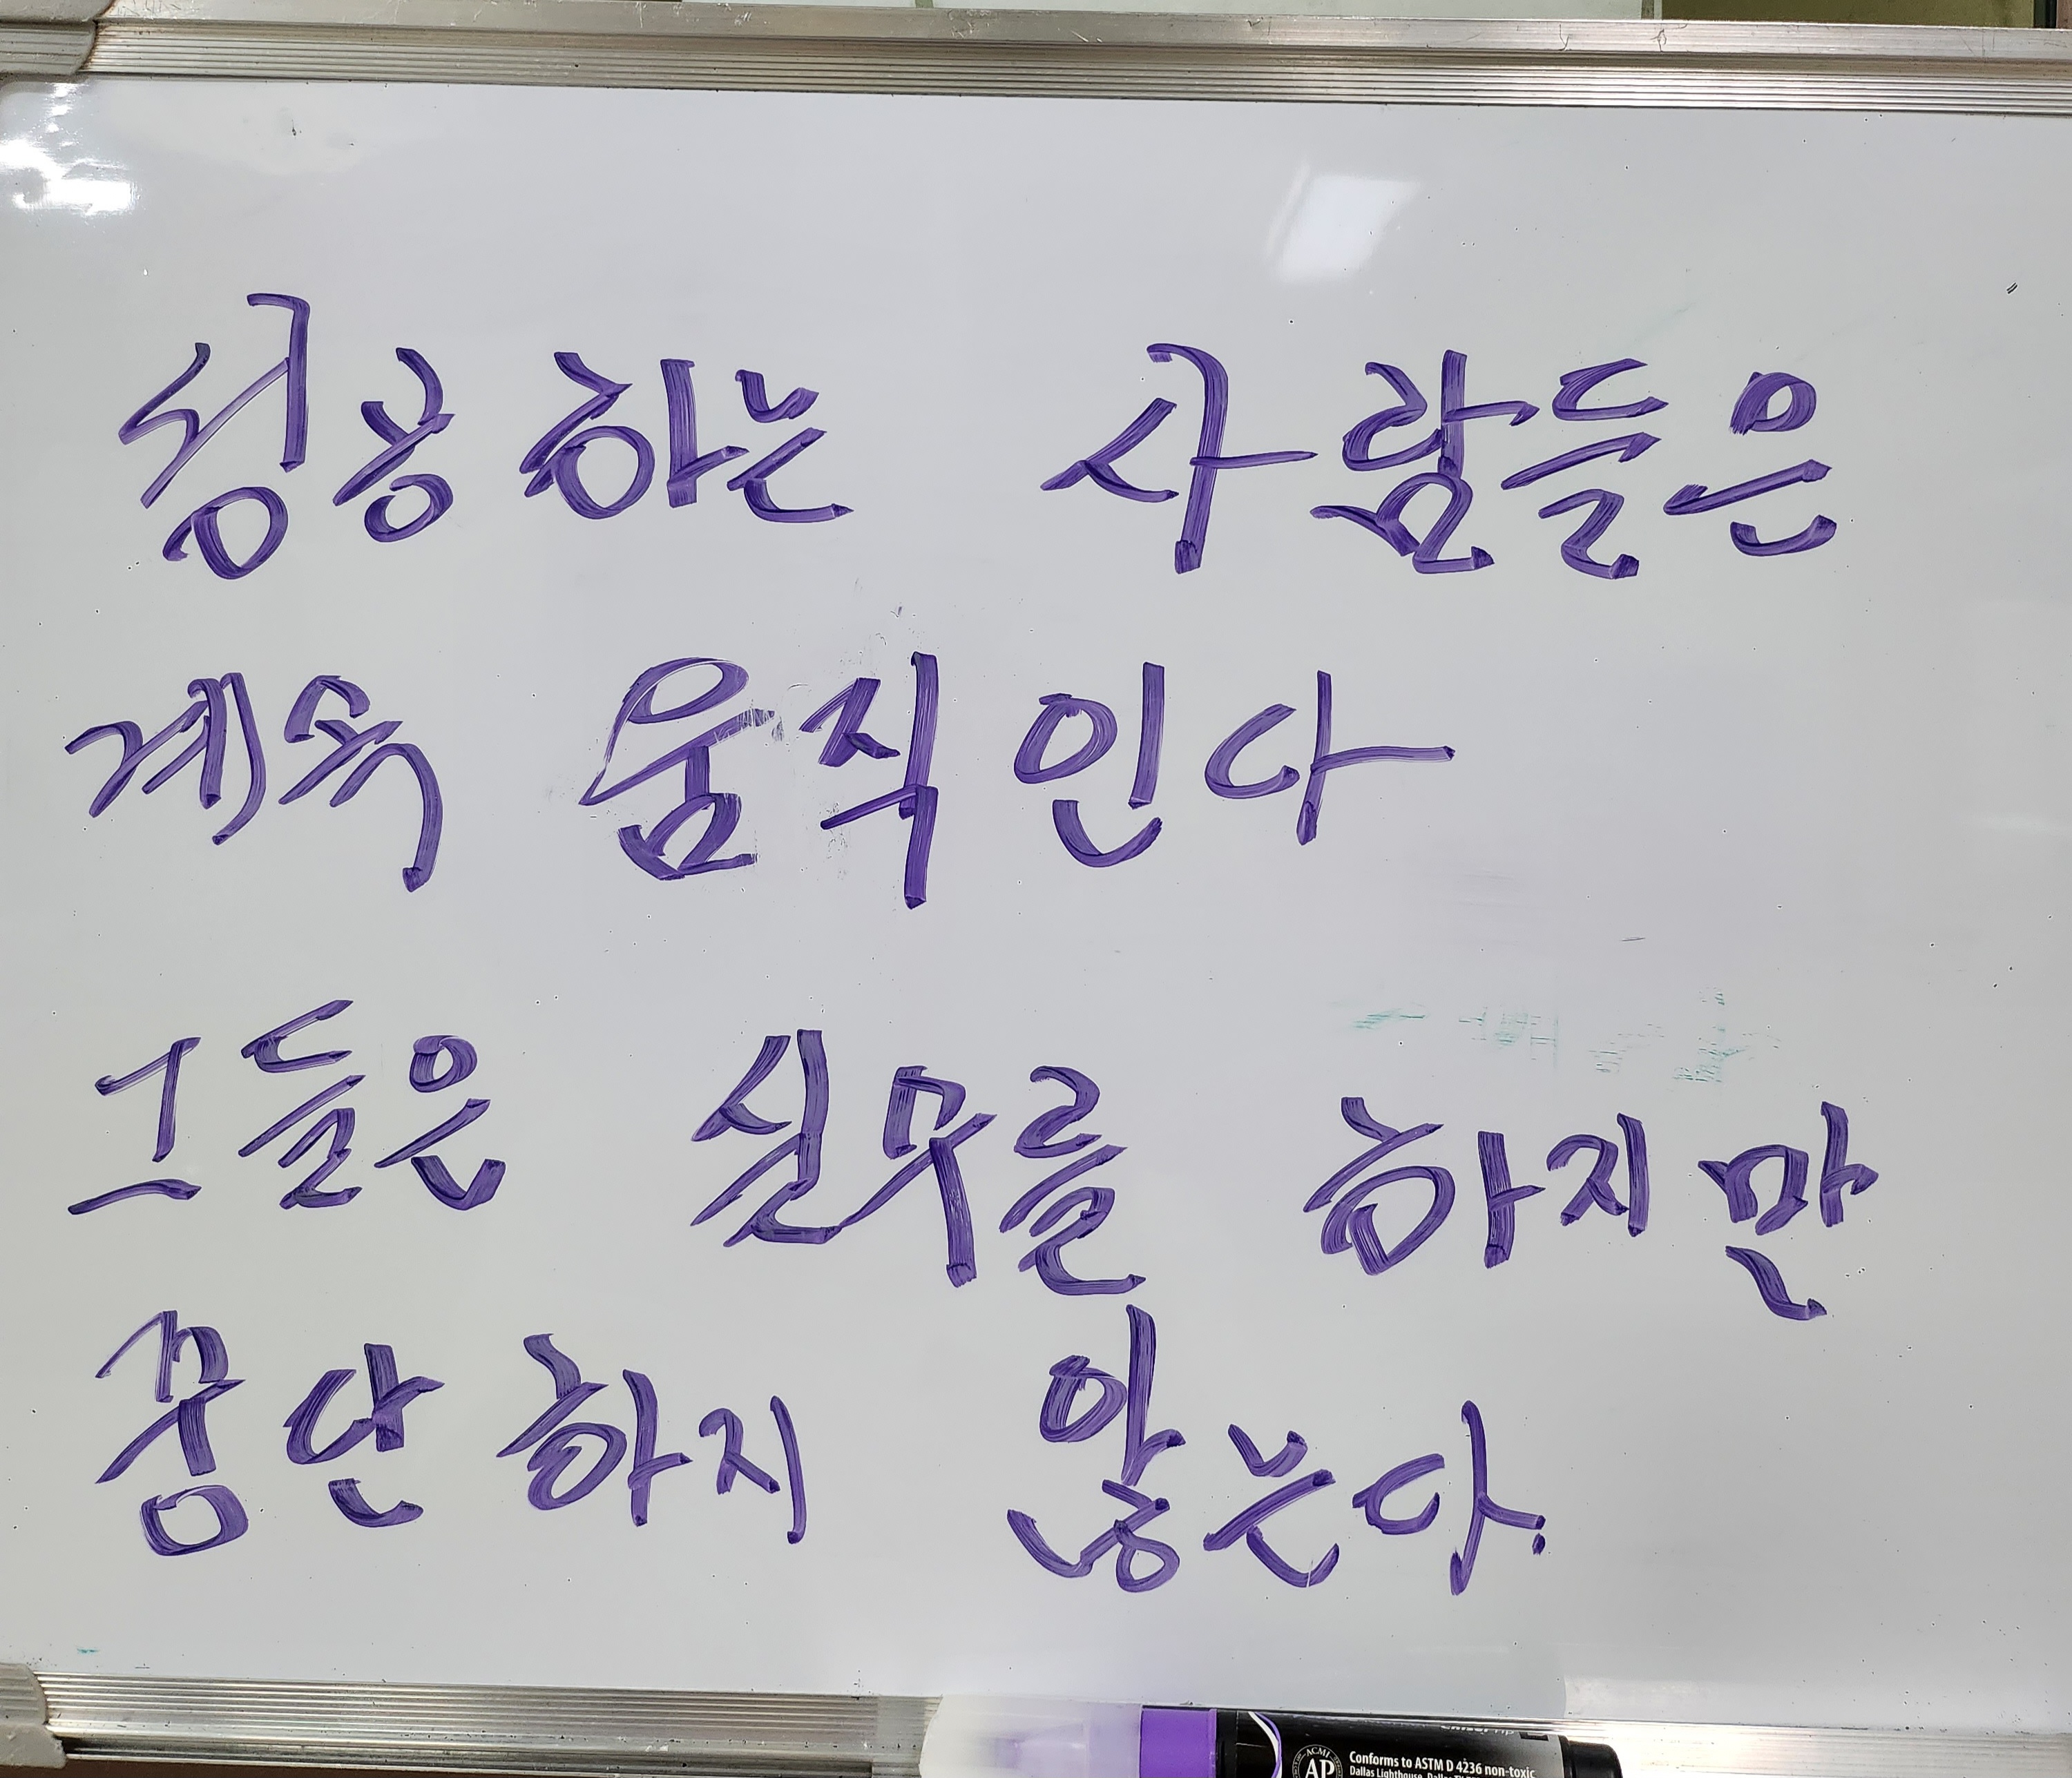 성공하는 사람들은
계속 움직인다
그들은 실수를 하지만
중단하지 않는다.
ACMI
AP
Conforms to ASTM D 4236 non-toxic
Dallas Lighthouse, Dallas